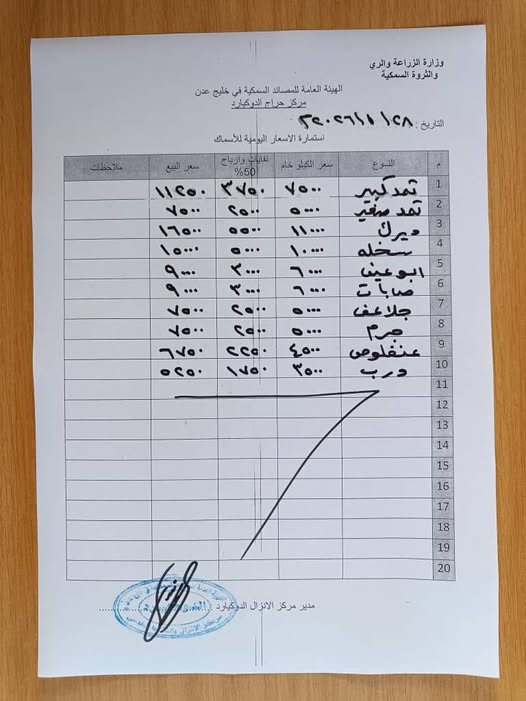 وزارة الزراعة والري
والثروة السمكية
الهيئة العامة للمصائد السمكية في خليج عدن
مركز حراج الدوكيارد
التاريخ : ٢٨ / ١ / ٢٠٢٦
استمارة الاسعار اليومية للأسماك
م النوع سعر الكيلو خام نفايات وارباح 50% سعر البيع ملاحظات
1 ثمد كبير ٧٥٠٠ ٣٧٥٠ ١١٢٥٠
2 ثمد صغير ٥٠٠٠ ٢٥٠٠ ٧٥٠٠
3 ديرك ١١٠٠٠ ٥٥٠٠ ١٦٥٠٠
4 سخله ١٠٠٠٠ ٥٠٠٠ ١٥٠٠٠
5 ابو عين ٦٠٠٠ ٣٠٠٠ ٩٠٠٠
6 صابات ٦٠٠٠ ٣٠٠٠ ٩٠٠٠
7 جلاعف ٥٠٠٠ ٢٥٠٠ ٧٥٠٠
8 جرم ٥٠٠٠ ٢٥٠٠ ٧٥٠٠
9 عنفلوص ٤٥٠٠ ٢٢٥٠ ٦٧٥٠
10 درب ٣٥٠٠ ١٧٥٠ ٥٢٥٠
11
12
13
14
15
16
17
18
19
20
مدير مركز الانزال الدوكيارد :